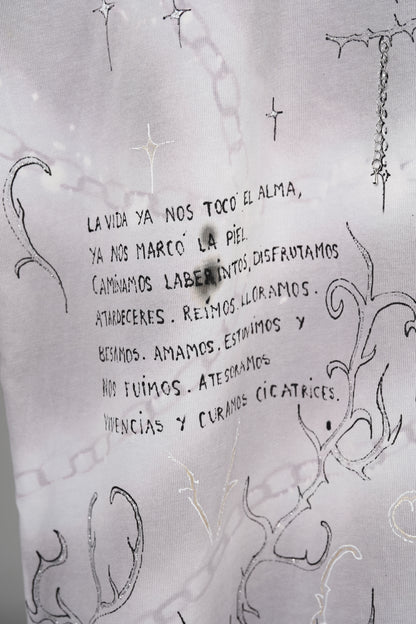 LA VIDA YA NOS TOCÓ EL ALMA,
YA NOS MARCÓ LA PIEL.
CAMINAMOS LABERINTOS, DISFRUTAMOS
ATARDECERES. REÍMOS. LLORAMOS.
BESAMOS. AMAMOS. ESTUVIMOS Y
NOS FUIMOS. ATESORAMOS
VIVENCIAS Y CURAMOS CICATRICES.